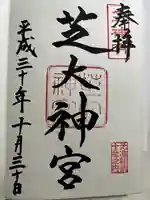 奉拝
芝大神宮
平成三十年十月三十日